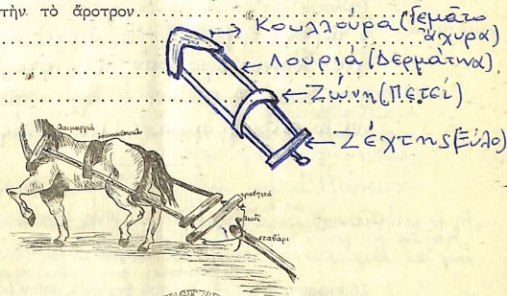 τὴν τὸ ἄροτρον
Κουλλούρα (Γεμάτο
ἄχυρα)
Λουριά (Δερμάτινα)
Ζώνη (Πετσί)
Ζέχτης (Ξύλο)
λαιμαργιά
σταβάρι